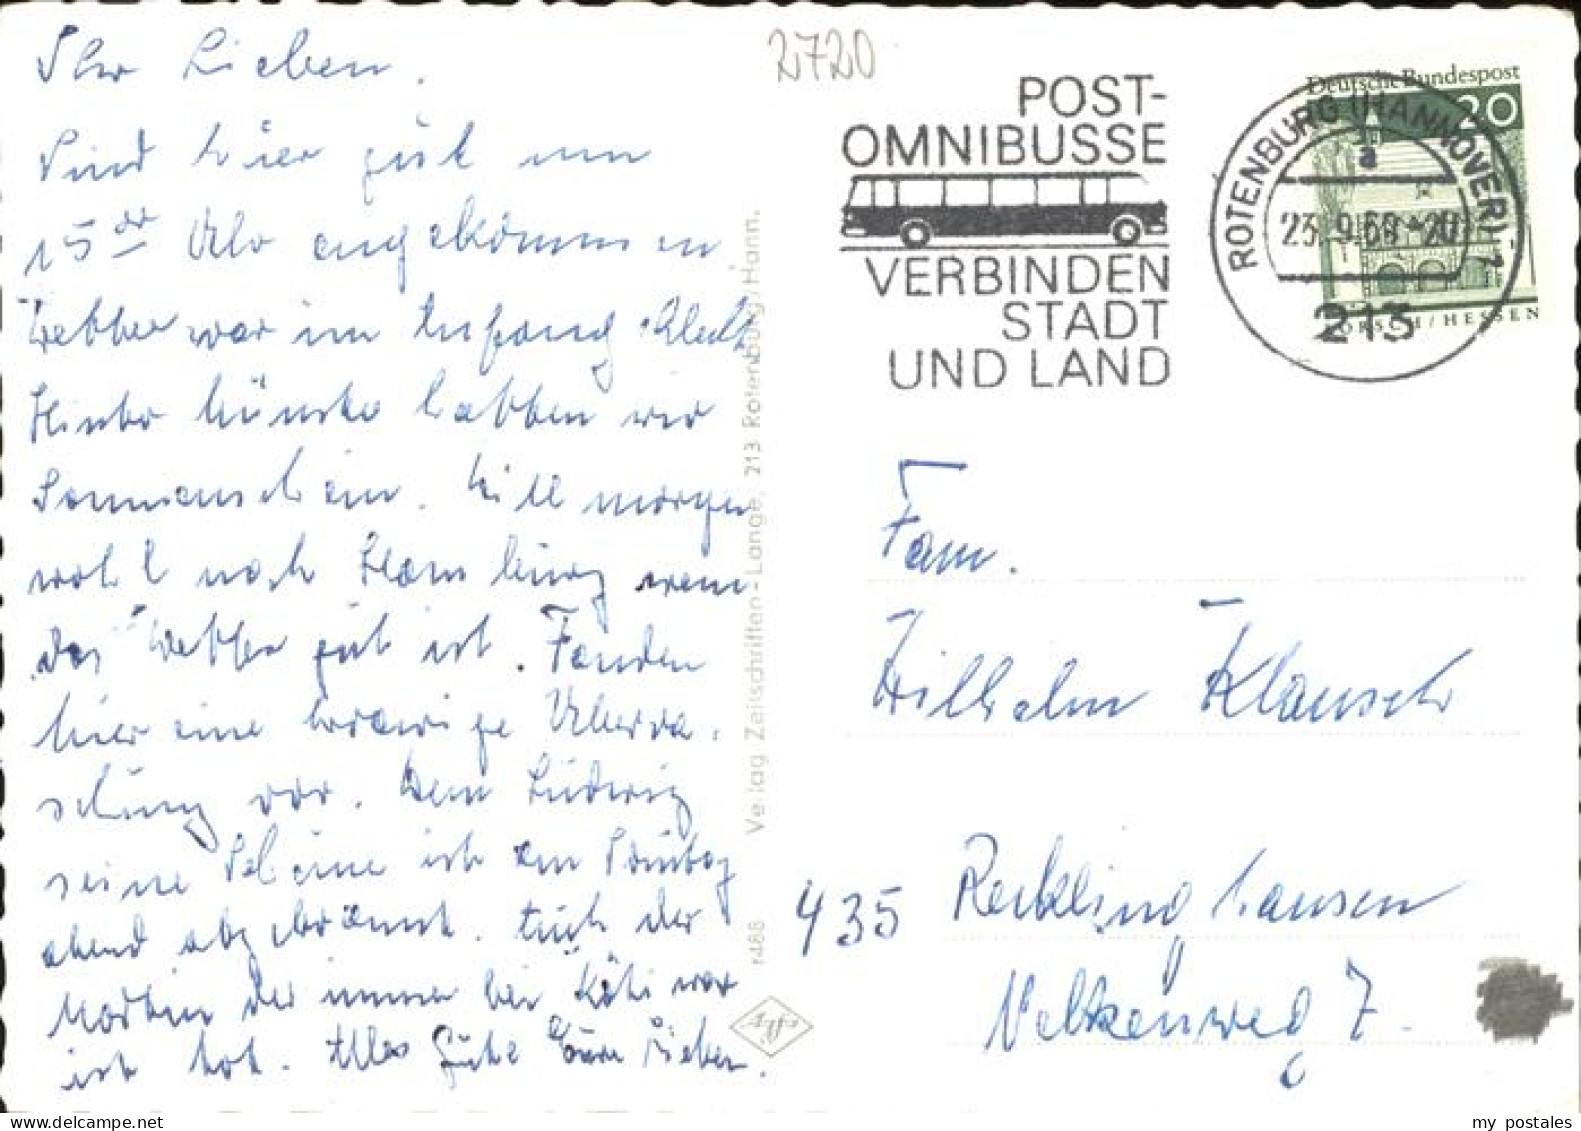 Ihr Lieben.
Sind hier gut um
15 Uhr angekommen
Wetter war im Anfang schlecht
Hinter haben wir
Sonnenschein. Will morgen
wohl nach Hamburg wenn
das Wetter gut ist. Fanden
hier eine traurige Überra-
schung vor. Dem Ludwig
seine Scheune ist am Sontag
abend abgebrannt. Auch der
Martin der immer bei Käti war
ist tot. Alles Gute Eure Lieben.
Verlag Zeitschriften-Lange, 213 Rotenburg/Hann.
r488
2720
POST-
OMNIBUSSE
VERBINDEN
STADT
UND LAND
Deutsche Bundespost
20
LORSCH/HESSEN
ROTENBURG (HANNOVER) 1
a
23.9.68-20
213
Fam.
Wilhelm
435 Recklinghausen
Nelkenweg 7.
my postales